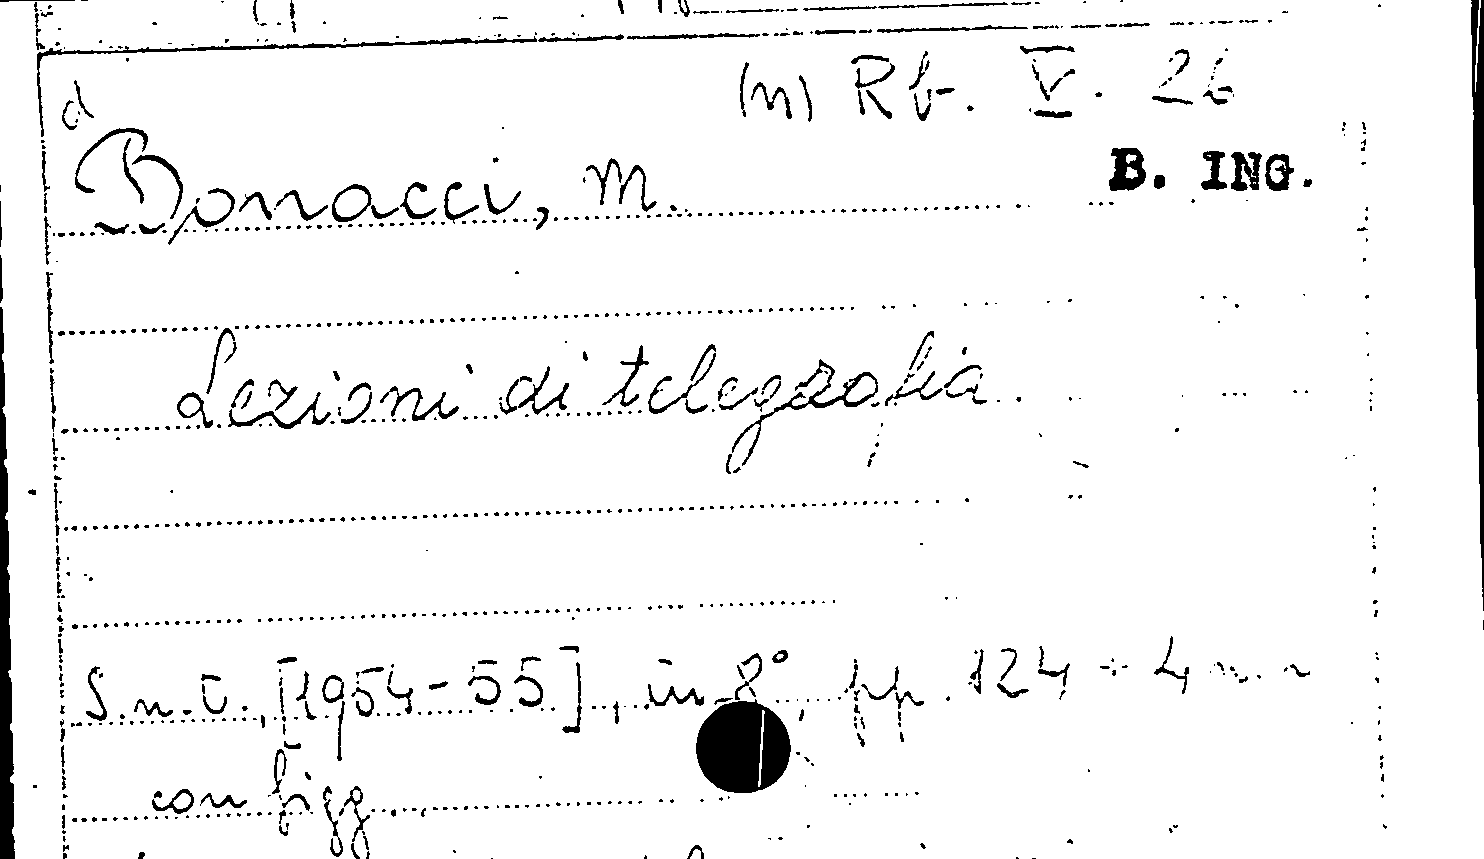 d
(n) Rb. V. 26
B. ING.
Bonacci, M.
Lezioni di telegrafia
S.n.t., [1954-55], in 8°, pp. 124 + 4 n. n
con figg.